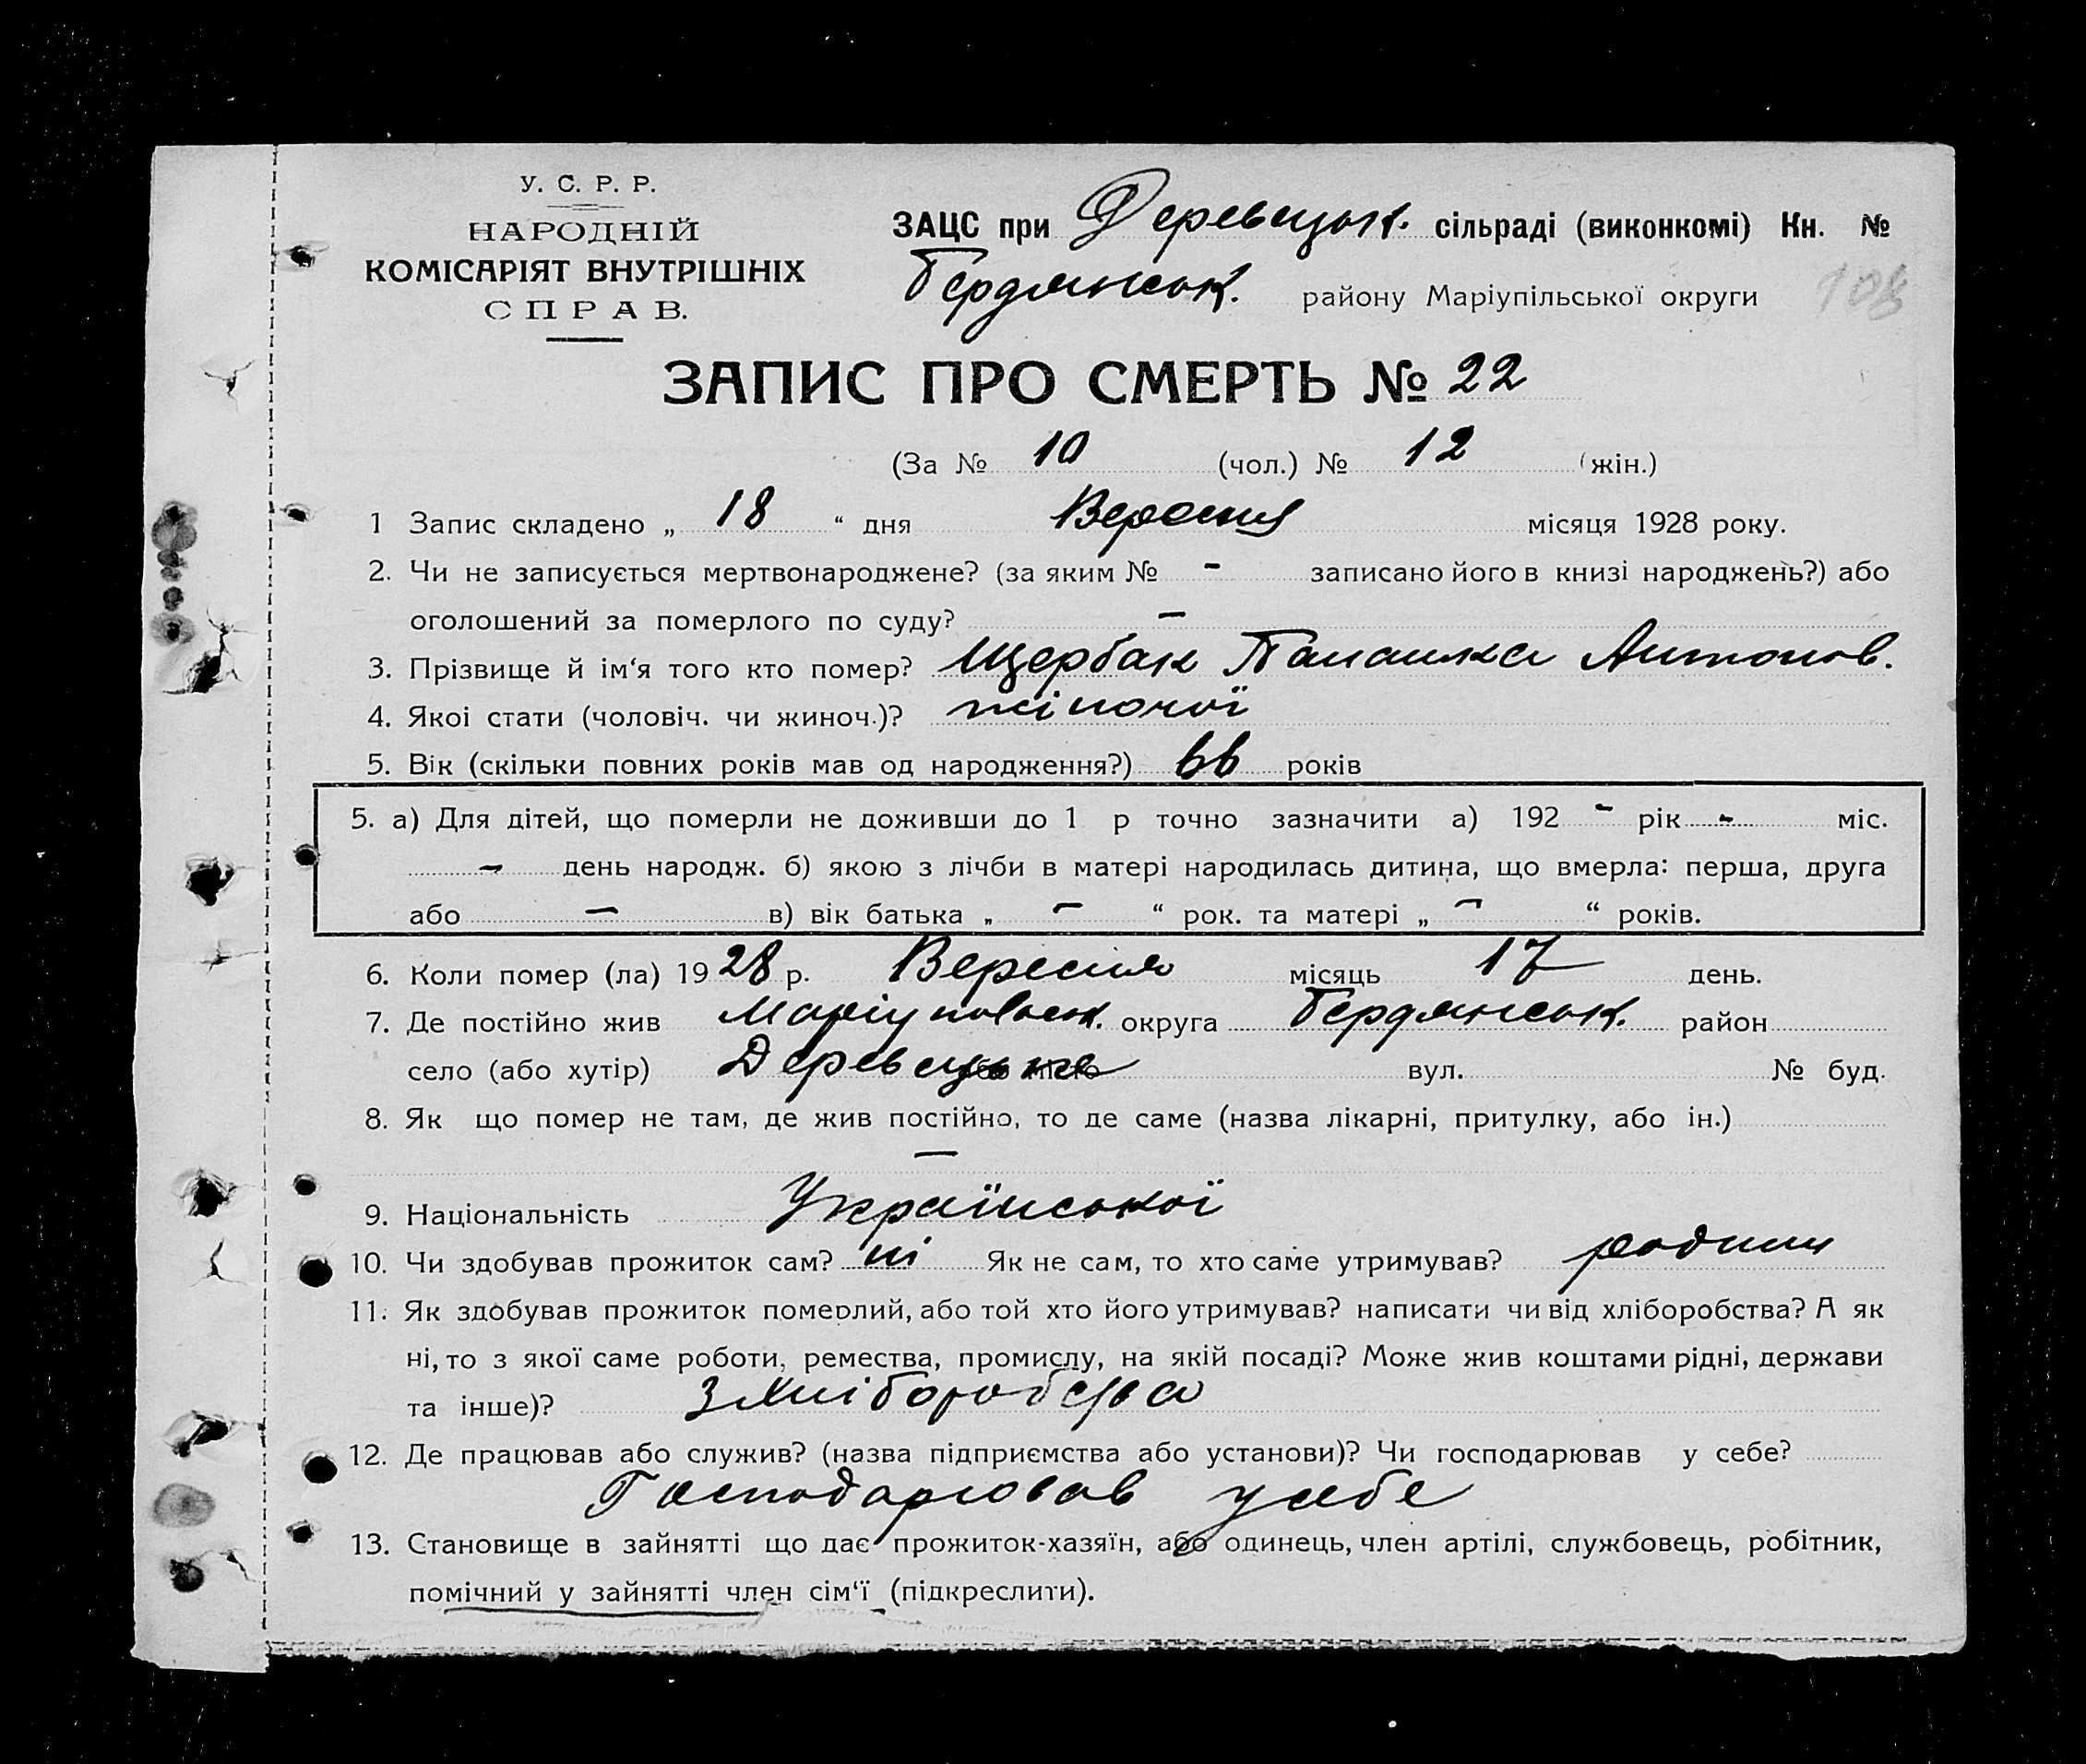 У. С. Р. Р.
НАРОДНІЙ
КОМІСАРІЯТ ВНУТРІШНІХ
СПРАВ.
ЗАЦС при Деревецьк. сільраді (виконкомі) Кн. №
Бердянськ. району Маріупільської округи
108
ЗАПИС ПРО СМЕРТЬ № 22
(За № 10 (чол.) № 12 (жін.)
1 Запис складено „ 18 “ дня Вересня місяця 1928 року.
2. Чи не записується мертвонароджене? (за яким № - записано його в книзі народжень?) або
оголошений за померлого по суду? —
3. Прізвище й ім‘я того кто помер? Щербак Палашка Антонов.
4. Якоі стати (чоловіч. чи жиноч.)? жіночої
5. Вік (скільки повних років мав од народження?) 66 років
5. а) Для дітей, що померли не доживши до 1 р точно зазначити а) 192 - рік - міс.
- день народж. б) якою з лічби в матері народилась дитина, що вмерла: перша, друга
або — в) вік батька „ - “ рок. та матері „ - “ років.
6. Коли помер (ла) 1928 р. Вересня місяць 17 день.
7. Де постійно жив Маріупольськ. округа Бердянськ. район
село (або хутір) Деревецьке або місто вул. № буд.
8. Як що помер не там, де жив постійно, то де саме (назва лікарні, притулку, або ін.)
—
9. Національність Української
10. Чи здобував прожиток сам? ні Як не сам, то хто саме утримував? родини
11. Як здобував прожиток померлий, або той хто його утримував? написати чи від хліборобства? А як
ні, то з якої саме роботи, ремества, промислу, на якій посаді? Може жив коштами рідні, держави
та інше)? З хліборобства
12. Де працював або служив? (назва підприємства або установи)? Чи господарював у себе?
Господарював у себе
13. Становище в зайнятті що дає прожиток-хазяїн, або одинець, член артілі, службовець, робітник,
помічний у зайнятті член сім‘ї (підкреслити).